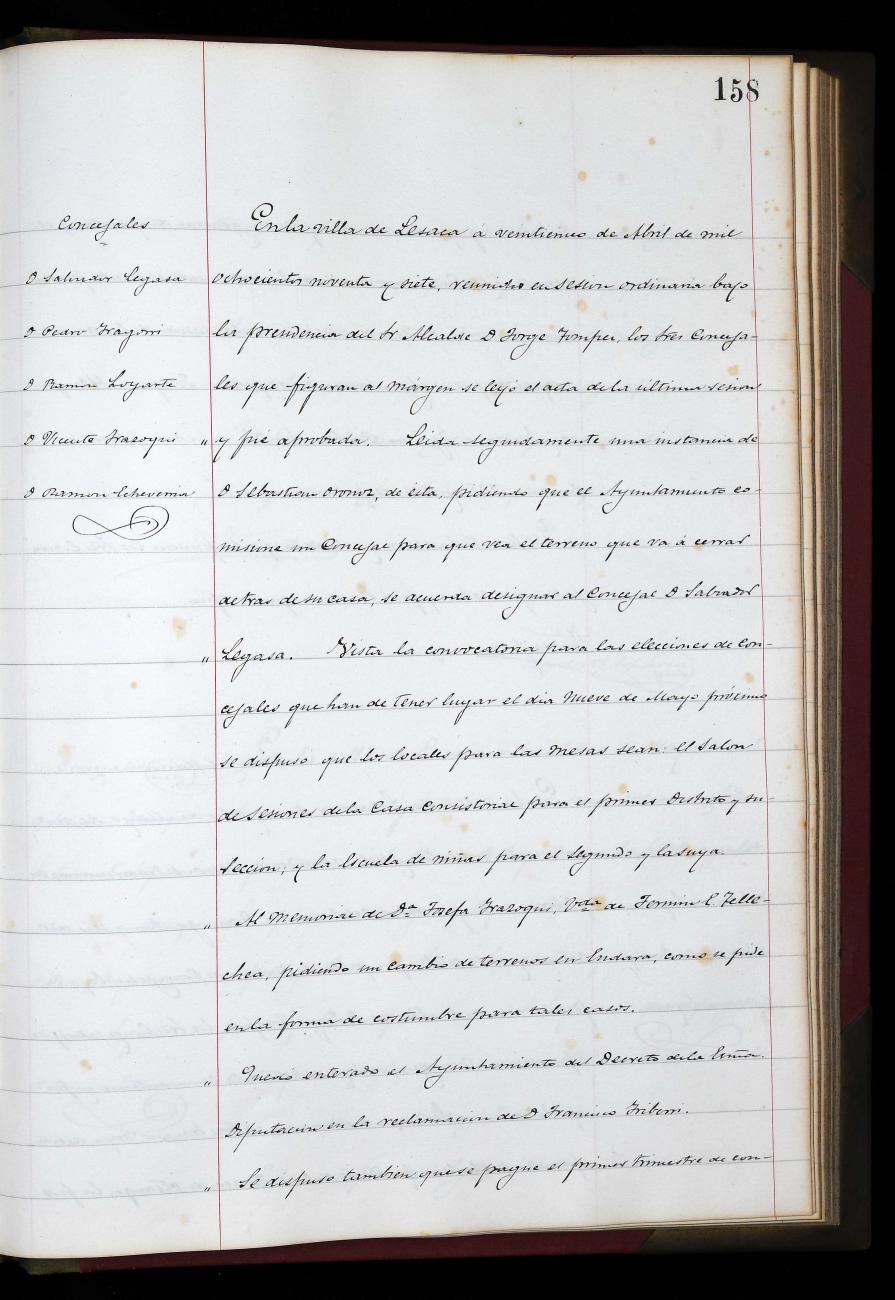 158
Concejales
D Salvador Legasa
D Pedro Iragorri
D Ramon Loyarte
D Vicente Irazoqui
D Ramon Echeverria
En la villa de Lesaca á veinticinco de Abril de mil
ochocientos noventa y siete, reunidos en sesion ordinaria bajo
la presidencia del Sr Alcalde D Jorge Tomper, los tres Conceja-
les que figuran al márgen se leyó el acta de la última sesion
" y fué aprobada. Leida seguidamente una instancia de
D Sebastian Oronoz, de esta, pidiendo que el Ayuntamiento co-
misione un Concejal para que vea el terreno que va á cerrar
detras de su casa, se acuerda designar al Concejal D Salvador
" Legasa. Vista la convocatoria para las elecciones de con-
cejales que han de tener lugar el dia Nueve de Mayo próximo
se dispuso que los locales para las mesas sean: el Salon
de Sesiones de la Casa Consistorial para el primer Distrito y su
Seccion; y la Escuela de niñas para el Segundo y la suya.
" Al Memorial de Dª Josefa Irazoqui, Vda de Fermin E. Telle-
chea, pidiendo un cambio de terrenos en Endara, como se pide
en la forma de costumbre para tales casos.
" Quedó enterado el Ayuntamiento del Decreto de la Exma.
Diputacion en la reclamacion de D Francisco Iriberri.
" Se dispuso tambien que se pague el primer trimestre de con-